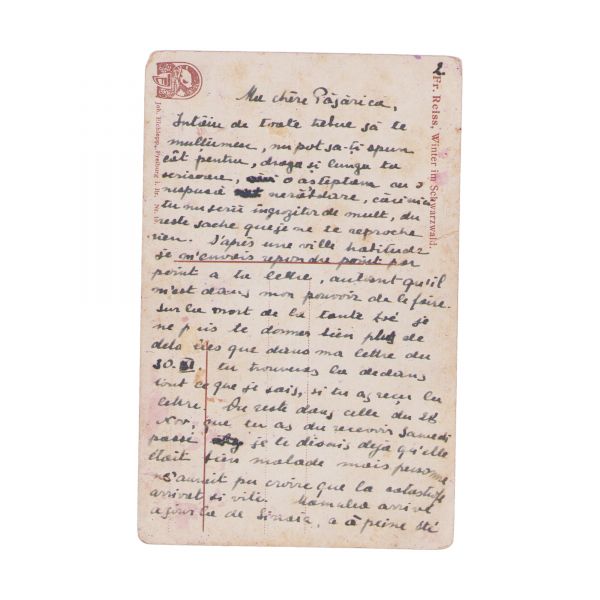 2.
Fr. Reiss, Winter im Schwarzwald.
Joh. Elchlepp, Freiburg i. Br. Nr.
Ma chère Păsărica,
Intâiu de toate trebue să te
mulțumesc, nu pot să-ți spun
cât pentru, draga și lunga ta
scrisoare, o așteptam cu o
nespusă nerăbdare, căci nici
tu nu scrii îngrozitor de mult, du
reste sache que je ne te reproche
rien. D'après une ville habitude
je m'en vais repondre point par
point a ta lettre, autant qu'il
m'est dans mon pouvoir de le faire.
Sur la mort de la tante je
ne puis te donner bien plus de
details que dans ma lettre du
30. XI. tu trouveras la dedans
tout ce que je sais, si tu as reçu la
lettre. Du reste dans celle du 28
Nov. que tu as du recevoir Samedi
passé je te disais déjà qu'elle
était bien malade mais personne
n'aurait pu croire que la catastrofe
arrivet si vite. Mamulea arrivé
ajourla de Sinaia, a à peine été